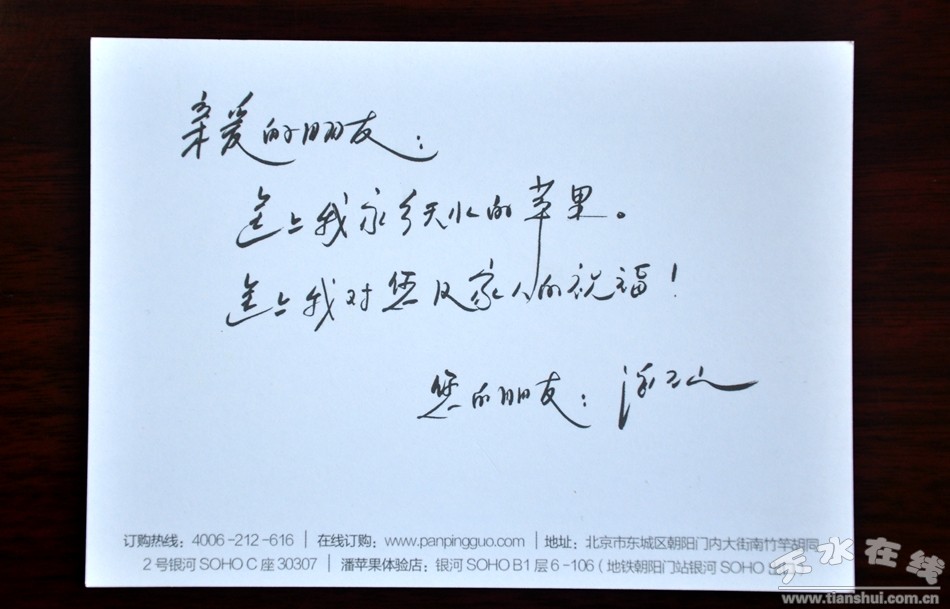 亲爱的朋友：
送上我家乡天水的苹果。
送上我对您及家人的祝福！
您的朋友：潘石屹
订购热线：4006-212-616 | 在线订购：www.panpingguo.com | 地址：北京市东城区朝阳门内大街南竹竿胡同
2号银河SOHO C座30307 | 潘苹果体验店：银河SOHO B1层6-106（地铁朝阳门站银河SOHO
天水在线
www.tianshui.com.cn